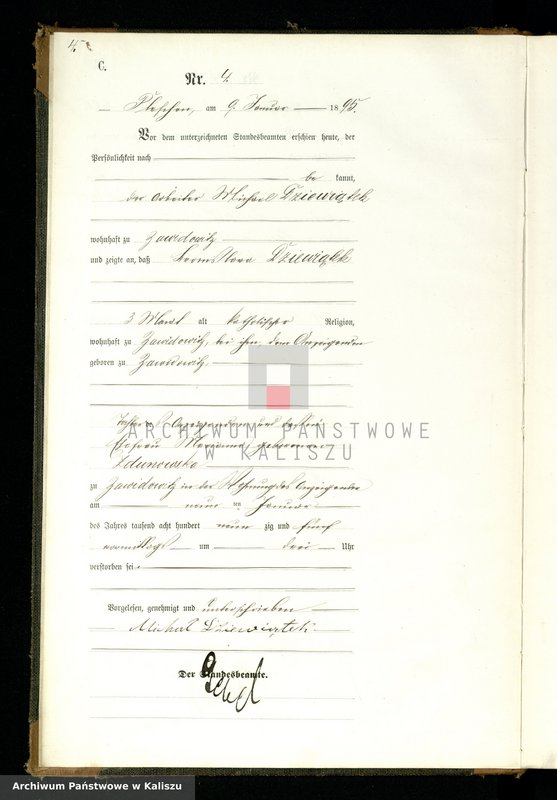 4.
C.
Nr. 4.
Pleschen, am 9. Januar 1895.
Vor dem unterzeichneten Standesbeamten erschien heute, der
Persönlichkeit nach
be kannt,
der Arbeiter Michael Dziewiątek
wohnhaft zu Zawidowitz
und zeigte an, daß Dziewiątek
3 Monat alt katholischer Religion,
wohnhaft zu Zawidowitz, bei ihm, dem Anzeigenden
geboren zu Zawidowitz,
Tochter des Anzeigenden und dessen
Ehefrau Marianna geborenen
Zdunowska
zu Zawidowitz in der Wohnung des Anzeigenden
am neun ten Januar
des Jahres tausend acht hundert neun zig und fünf
vormittags um drei Uhr
verstorben sei.
Vorgelesen, genehmigt und unterschrieben
Michał Dziewiątek
Der Standesbeamte.
ARCHIWUM PAŃSTWOWE
W KALISZU
Archiwum Państwowe w Kaliszu